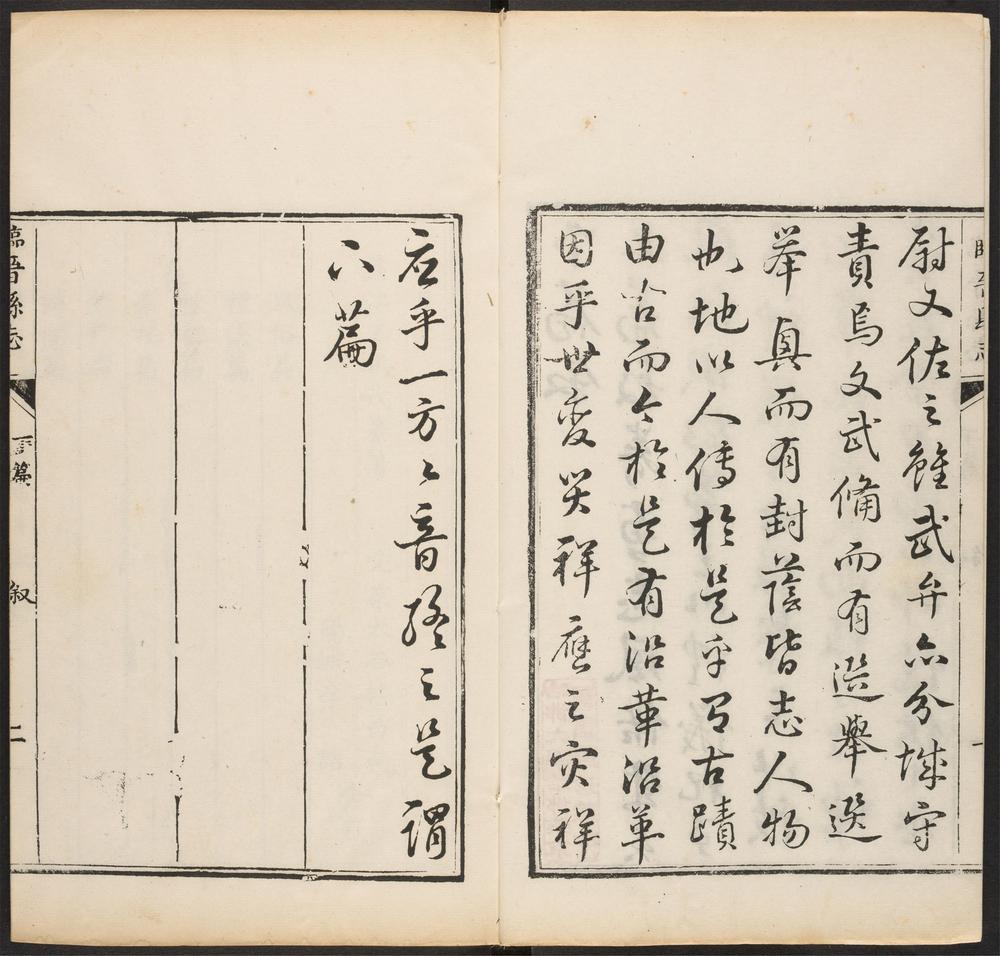 尉又佐之雖武弁亦分城守
責焉文武備而有選舉選
舉真而有封蔭皆志人物
也地以人傳於是乎有古蹟
由古而今於是有沿革沿革
因乎世變災祥應之灾祥
应乎一方之音終之是謂
六篇
臨晉縣志
篇
叙
二